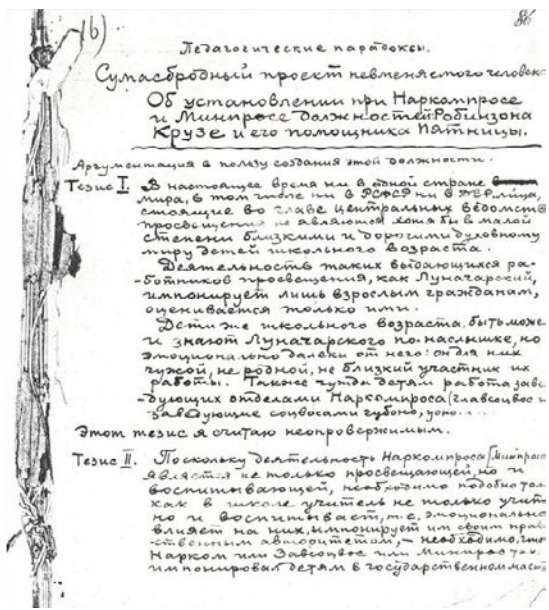 86
16)
Педагогические парадоксы.
Сумасбродный проект невменяемого человек
Об установлении при Наркомпросе
и Минпросе должностей: Робинзона
Крузе и его помощника Пятницы.
Аргументация в пользу создания этой должности.
Тезис I. В настоящее время ни в одной стране
мира, в том числе ни в РСФСР ни в ДВР лица,
стоящие во главе центральных ведомств
просвещения не являются хотя бы в малой
степени близкими и дорогими духовному
миру детей школьного возраста.
Деятельность таких выдающихся ра-
-ботников просвещения, как Луначарский,
импонирует лишь взрослым гражданам,
оценивается только ими.
Дети же школьного возраста, быть може
и знают Луначарского по-наслышке, но
эмоционально далеки от него: он для них
чужой, не родной, не близкий участник их
работы. Также чужда детям работа заве
-дующих отделами Наркомпроса (главсоцвос и
заведующие соцвосами губоно, уоно...
Этот тезис я считаю неопровержимым.
Тезис II. Поскольку деятельность Наркомпроса (Минпроса
является не только просвещающей, но и
воспитывающей, необходимо подобно том
как в школе учитель не только учит
но и воспитывает, т.е. эмоционально
влияет на них, импонирует им своим нрав
-ственным авторитетом, – необходимо, что
Нарком или Завсоцвос или Минпрос так
импонировал детям в государственном масш